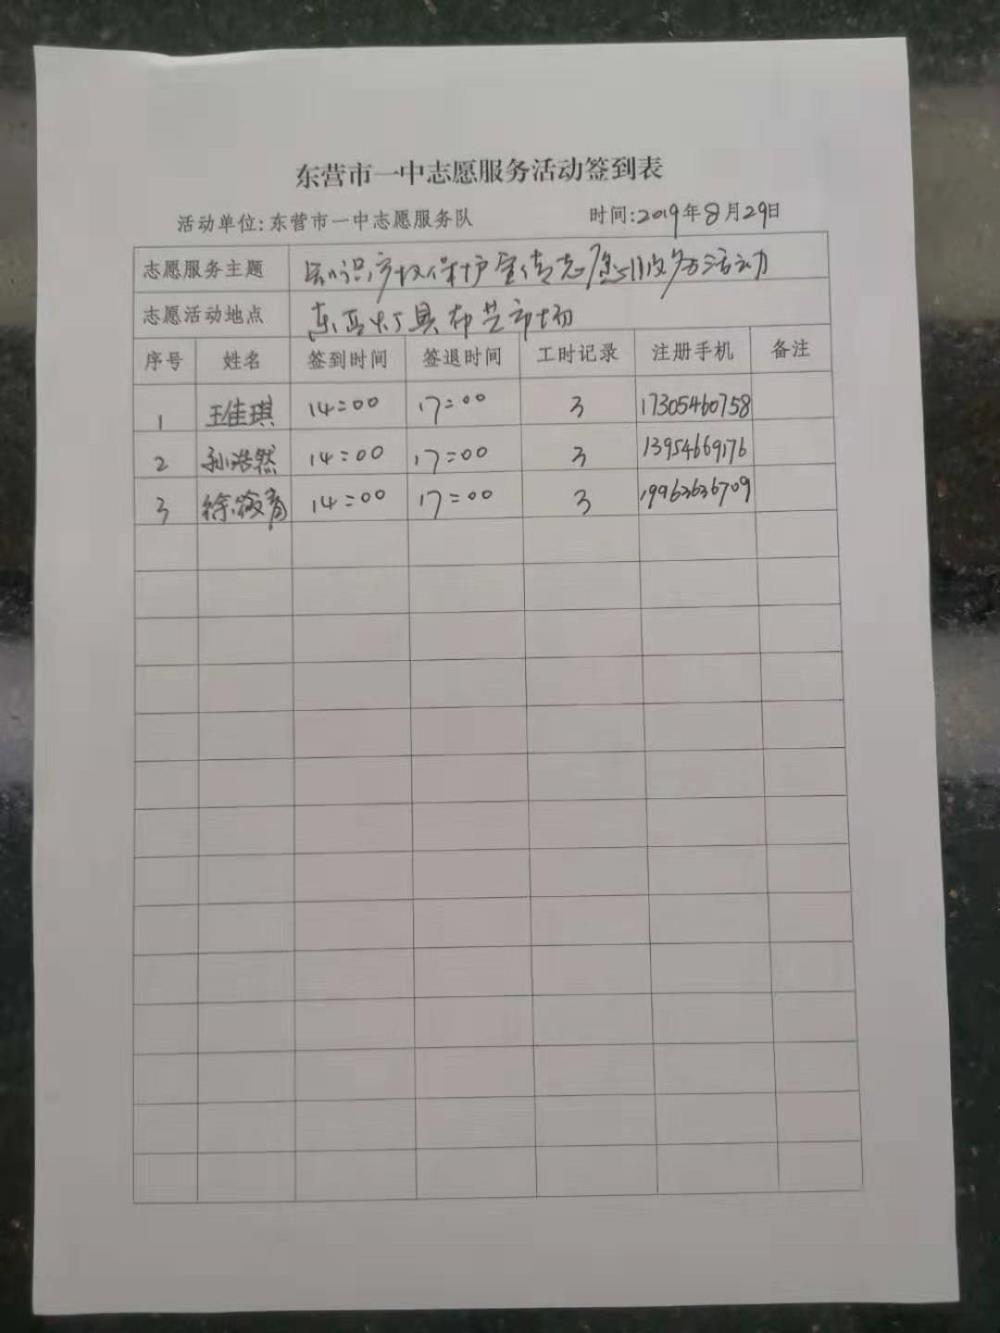 东营市一中志愿服务活动签到表
活动单位:东营市一中志愿服务队 时间:2019年8月29日
志愿服务主题 知识产权保护宣传志愿服务活动
志愿活动地点 东五灯具布艺市场
序号 姓名 签到时间 签退时间 工时记录 注册手机 备注
1 王佳琪 14:00 17:00 3 17305460758
2 孙浩然 14:00 17:00 3 13954669176
3 徐 14:00 17:00 3 19963636709